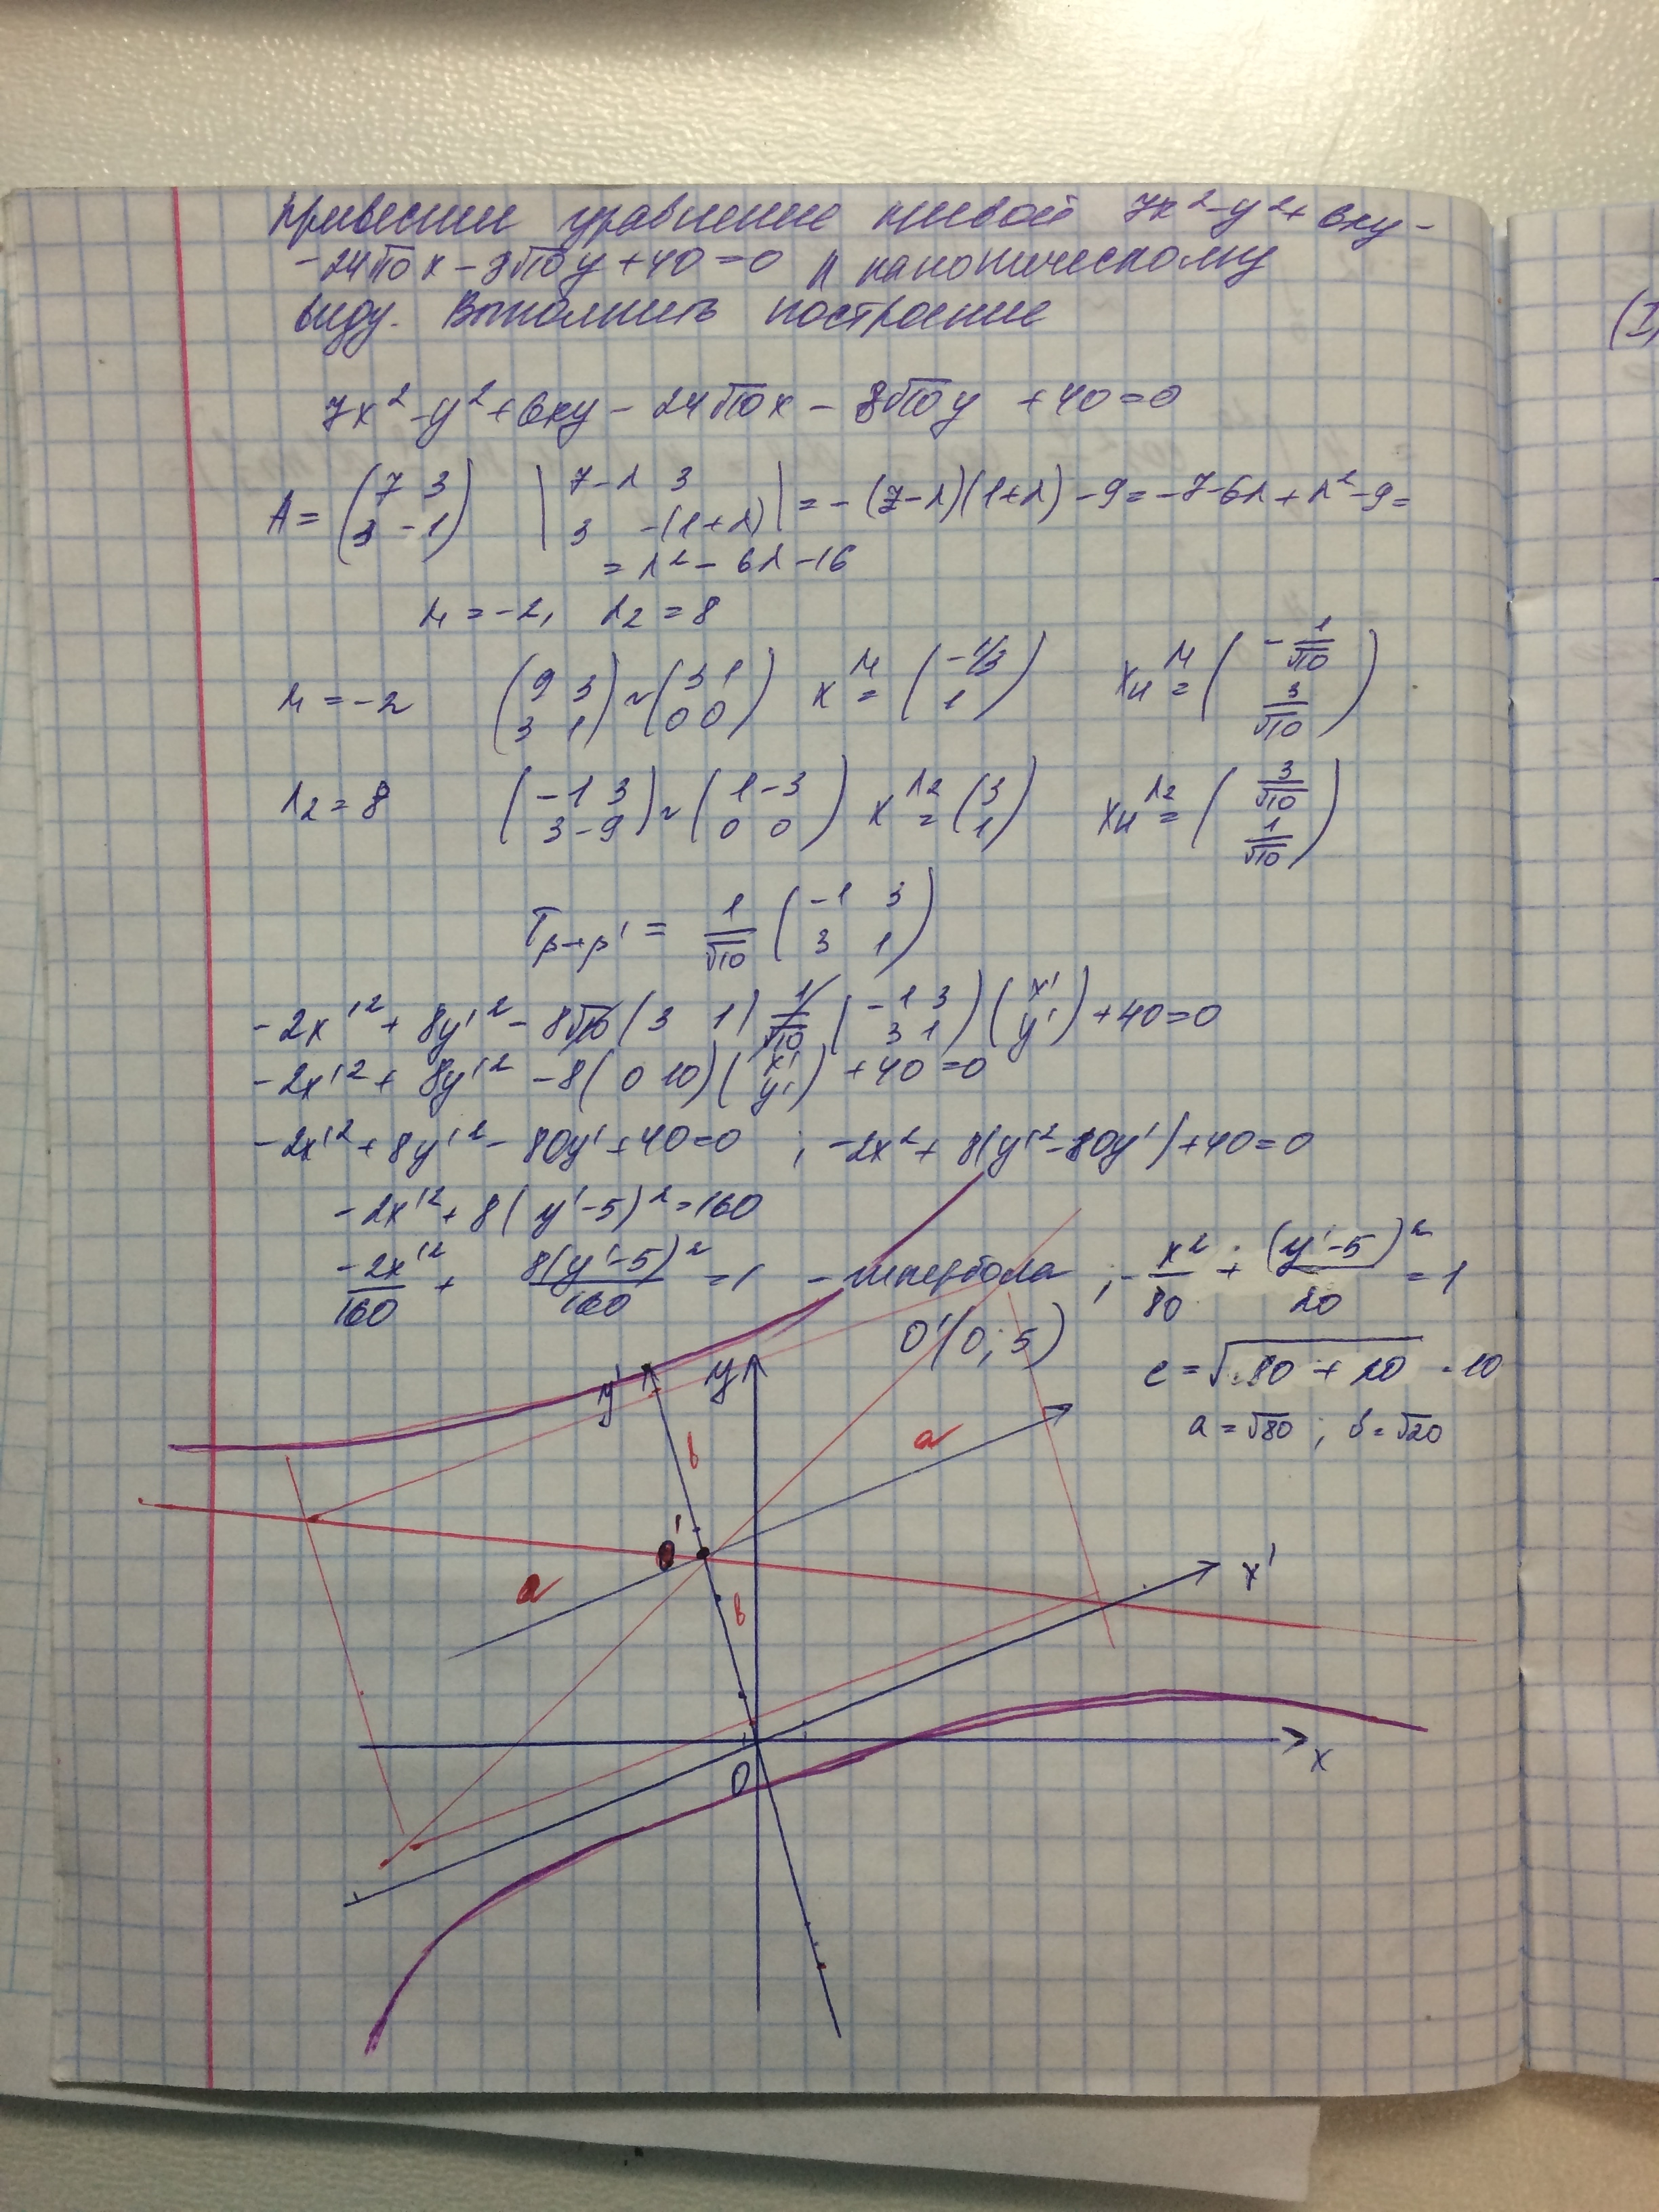 Привести уравнение кривой 7x² - y² + 6xy -
- 24√10 x - 8√10 y + 40 = 0 к каноническому
виду. Выполнить построение
7x² - y² + 6xy - 24√10 x - 8√10 y + 40 = 0
A = (7 3; 3 -1) |7-λ 3; 3 -(1+λ)| = -(7-λ)(1+λ) - 9 = -7 - 6λ + λ² - 9 =
= λ² - 6λ - 16
λ₁ = -2, λ₂ = 8
λ₁ = -2 (9 3; 3 1) ~ (3 1; 0 0) x^λ₁ = (-1/3; 1) xн^λ₁ = (-1/√10; 3/√10)
λ₂ = 8 (-1 3; 3 -9) ~ (1 -3; 0 0) x^λ₂ = (3; 1) xн^λ₂ = (3/√10; 1/√10)
T β→β' = 1/√10 (-1 3; 3 1)
-2x'² + 8y'² - 8√10 (3 1) 1/√10 (-1 3; 3 1)(x'; y') + 40 = 0
-2x'² + 8y'² - 8(0 10)(x'; y') + 40 = 0
-2x'² + 8y'² - 80y' + 40 = 0 ; -2x² + 8(y'² - 10y') + 40 = 0
-2x'² + 8(y' - 5)² = 160
-2x'²/160 + 8(y' - 5)²/160 = 1 - гипербола ; -x²/80 + (y' - 5)²/20 = 1
O'(0; 5)
c = √80 + 20 = 10
a = √80 ; b = √20
y'
y
b
a
O'
a
b
x'
O
x
(I)